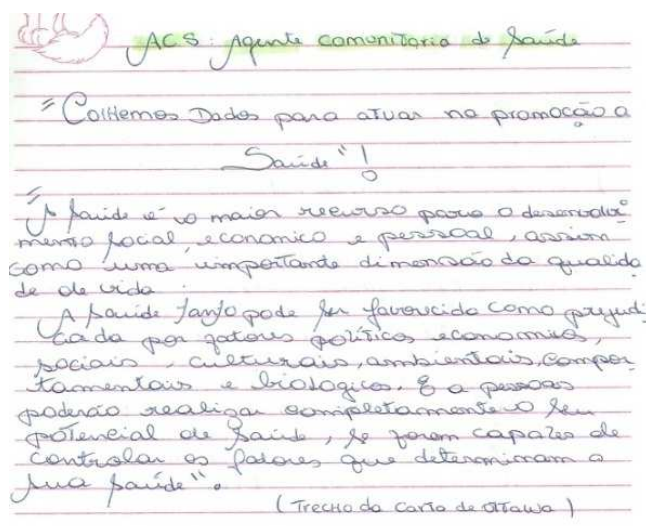 ACS: Agente comunitario de Saúde
"Colhemos Dados para atuar na promoção a
Saúde"!
"A Saúde é o maior recurso para o desenvolvi
mento social, economico e pessoal, assim
como uma importante dimensão da qualida
de de vida.
A Saúde tanto pode ser favorecida como prejudi
cada por fatores políticos economicos,
sociais, culturais, ambientais, compor
tamentais e biologicos. E a pessoas
poderão realizar completamente o seu
potencial de Saúde, se forem capazes de
controlar os fatores que determinam a
sua saúde".
(Trecho da Carta de Ottawa)